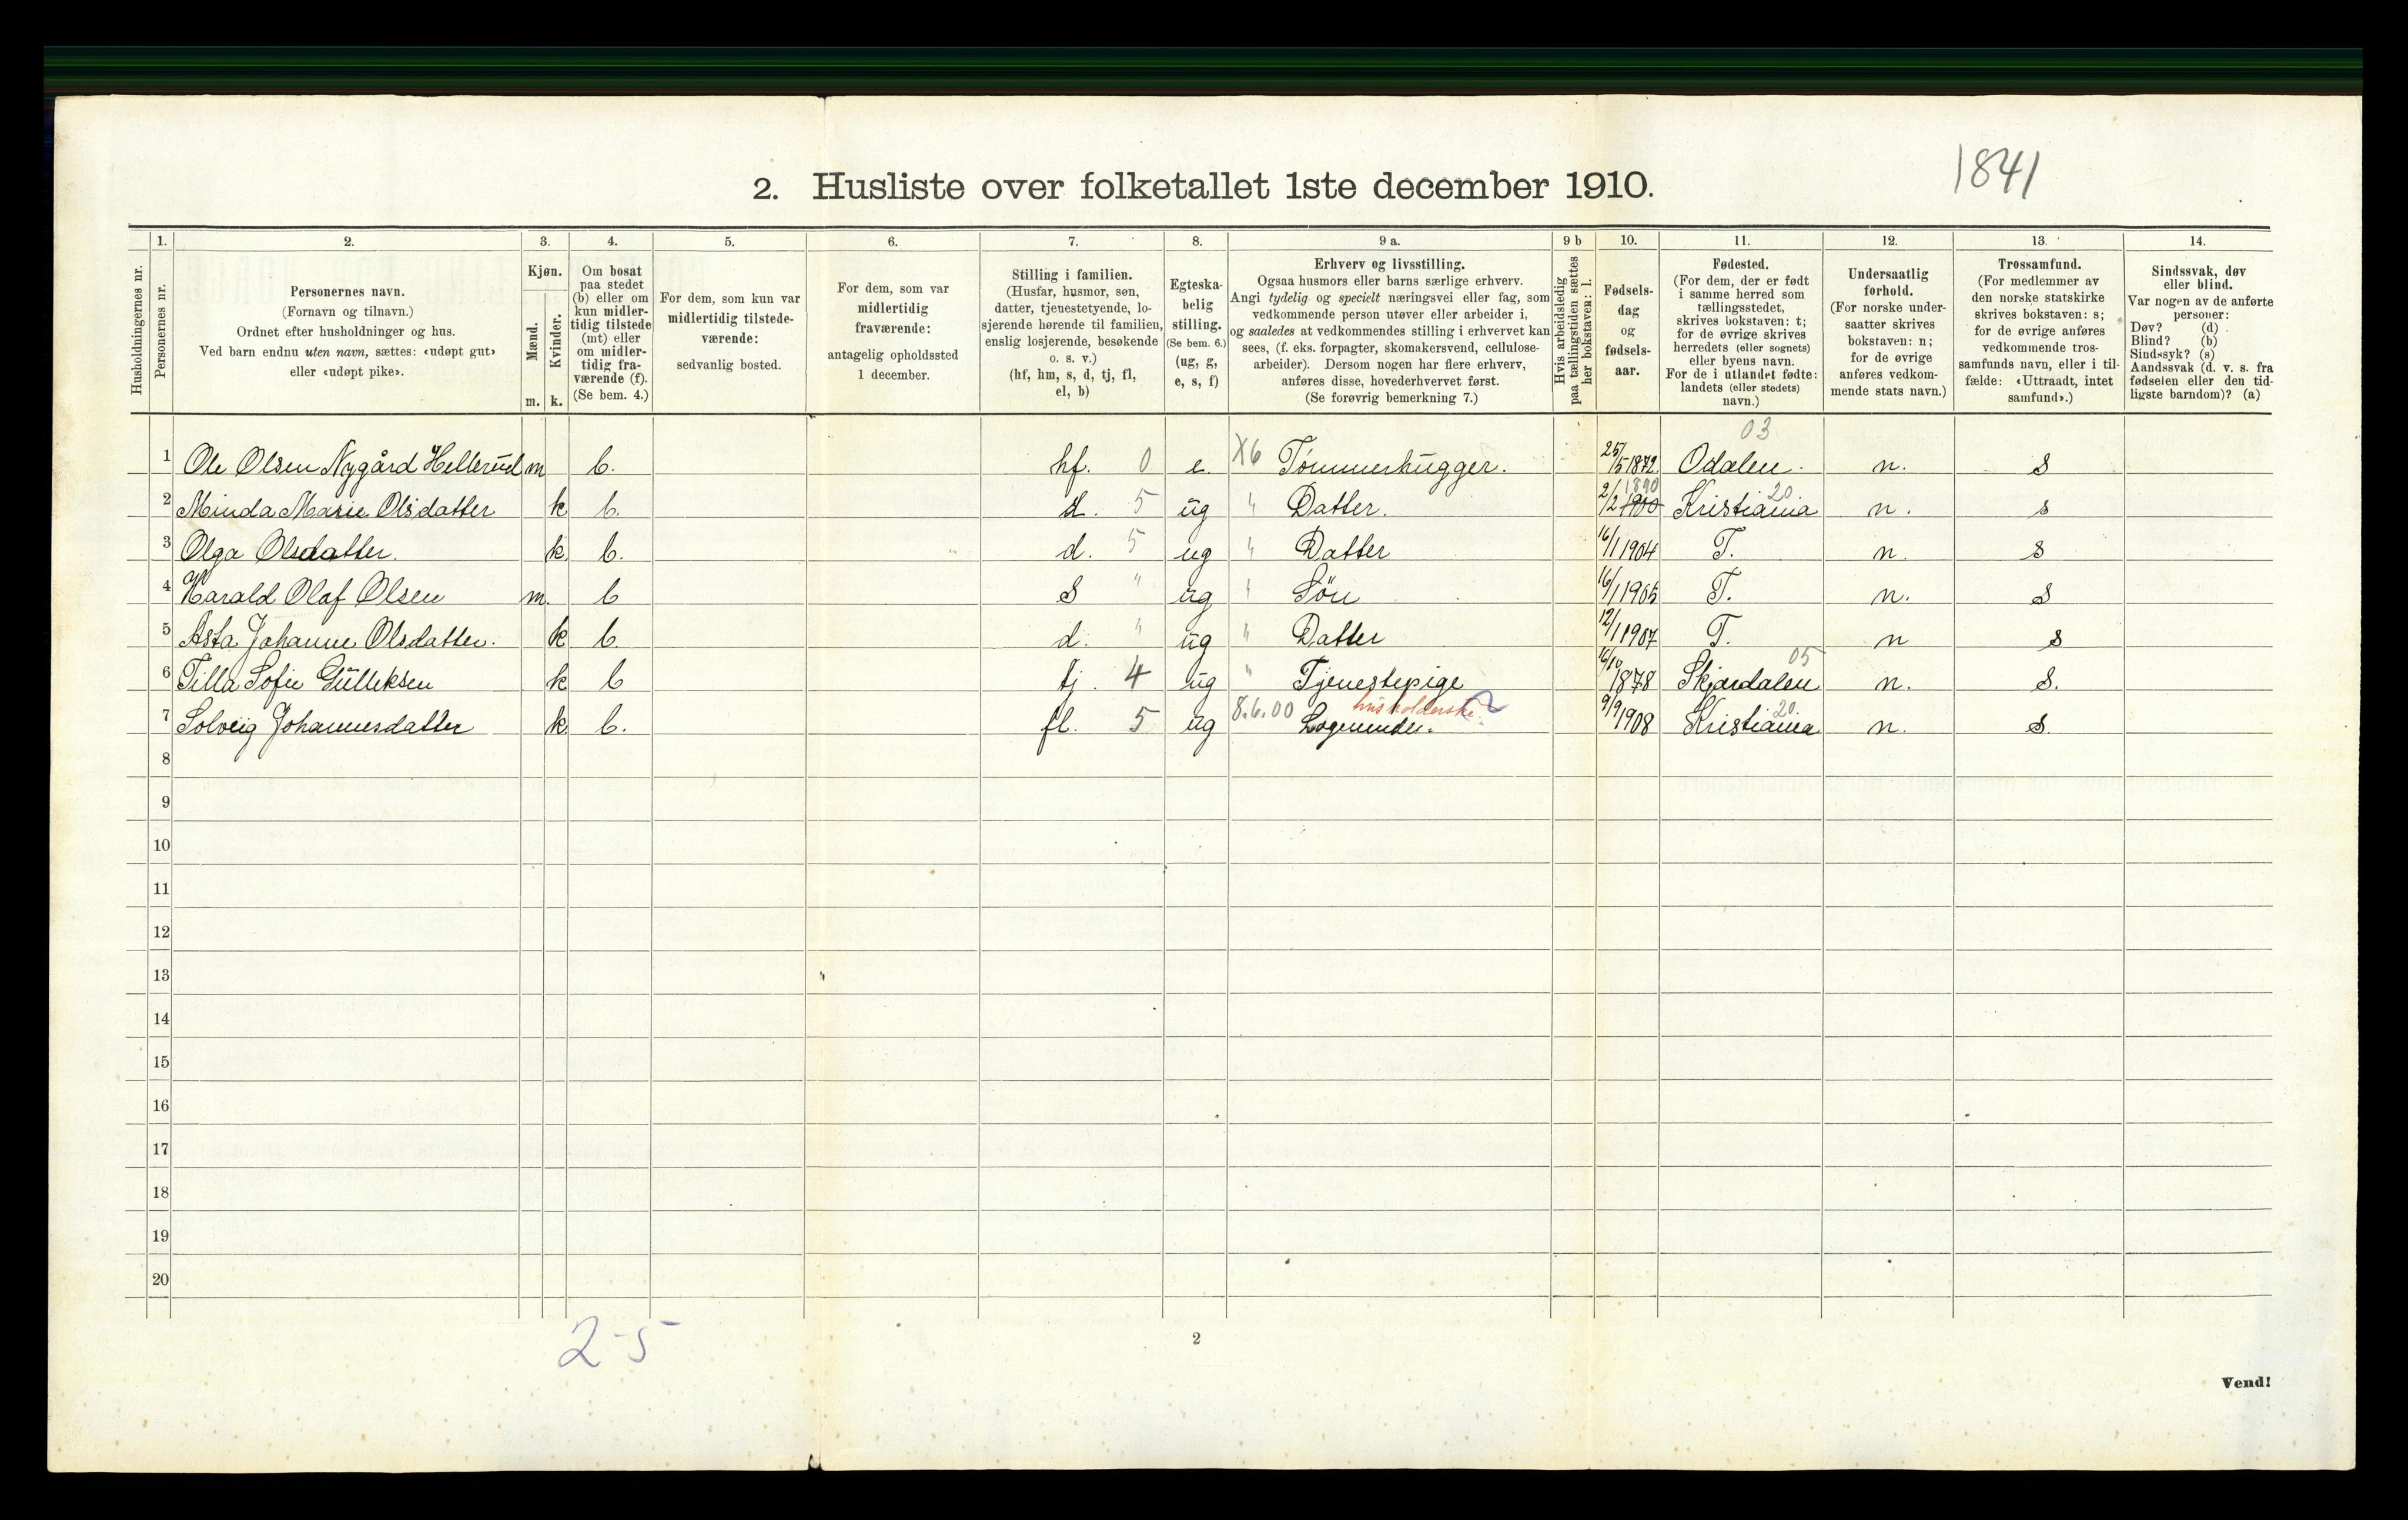 1841
2. Husliste over folketallet 1ste december 1910.
Husholdningernes nr.
1.
Personernes nr.
2.
Personernes navn.
(Fornavn og tilnavn.)
Ordnet efter husholdninger og hus.
Ved barn endnu uten navn, sættes: «udøpt gut»
eller «udøpt pike».
3.
Kjøn.
Mænd.
Kvinder.
m. k.
4.
Om bosat
paa stedet
(b) eller om
kun midler-
tidig tilstede
(mt) eller
om midler-
tidig fra-
værende (f).
(Se bem. 4.)
5.
For dem, som kun var
midlertidig tilstede-
værende:
sedvanlig bosted.
6.
For dem, som var
midlertidig
fraværende:
antagelig opholdssted
1 december.
7.
Stilling i familien.
(Husfar, husmor, søn,
datter, tjenestetyende, lo-
sjerende hørende til familien,
enslig losjerende, besøkende
o. s. v.)
(hf, hm, s, d, tj, fl,
el, b)
8.
Egteska-
belig
stilling.
(Se bem. 6.)
(ug, g,
e, s, f)
9 a.
Erhverv og livsstilling.
Ogsaa husmors eller barns særlige erhverv.
Angi tydelig og specielt næringsvei eller fag, som
vedkommende person utøver eller arbeider i,
og saaledes at vedkommendes stilling i erhvervet kan
sees, (f. eks. forpagter, skomakersvend, cellulose-
arbeider). Dersom nogen har flere erhverv,
anføres disse, hovederhvervet først.
(Se forøvrig bemerkning 7.)
9 b
Hvis arbeidsledig
paa tællingstiden sættes
her bokstaven: l.
10.
Fødsels-
dag
og
fødsels-
aar.
11.
Fødested.
(For dem, der er født
i samme herred som
tællingsstedet,
skrives bokstaven: t;
for de øvrige skrives
herredets (eller sognets)
eller byens navn.
For de i utlandet fødte:
landets (eller stedets)
navn.)
12.
Undersaatlig
forhold.
(For norske under-
saatter skrives
bokstaven: n;
for de øvrige
anføres vedkom-
mende stats navn.)
13.
Trossamfund.
(For medlemmer av
den norske statskirke
skrives bokstaven: s;
for de øvrige anføres
vedkommende tros-
samfunds navn, eller i til-
fælde: «Uttraadt, intet
samfund».)
14.
Sindssvak, døv
eller blind.
Var nogen av de anførte
personer:
Døv? (d)
Blind? (b)
Sindssyk? (s)
Aandssvak (d. v. s. fra
fødselen eller den tid-
ligste barndom)? (a)
03
1 Ole Olsen Nygård Hellerud m b. hf. 0 e. X6 Tømmerhugger. 25/5 1872 Odalen. n. s
2 Minda Marie Olsdatter k b. d. 5 ug " Datter. 2/2 1900 1890 Kristiania 20 n. s
3 Olga Olsdatter. k b. d. 5 ug " Datter 16/1 1904 T. n. s
4 Harald Olaf Olsen m. b s " ug " Sön 16/1 1905 T. n. s
5 Asta Johanne Olsdatter. k b. d. " ug " Datter 12/1 1907 T. n s
6 Tilla Sofie Gulleksen k b tj. 4 ug " Tjenestepige 16/10 1878 Skjærdalen 05 n. s.
husholderske
7 Solveig Johannesdatter k. b. fl. 5 ug 8.6.00 Logerende. 9/9 1908 Kristiania 20. n. s.
8
9
10
11
12
13
14
15
16
17
18
19
20
2-5
2
Vend!